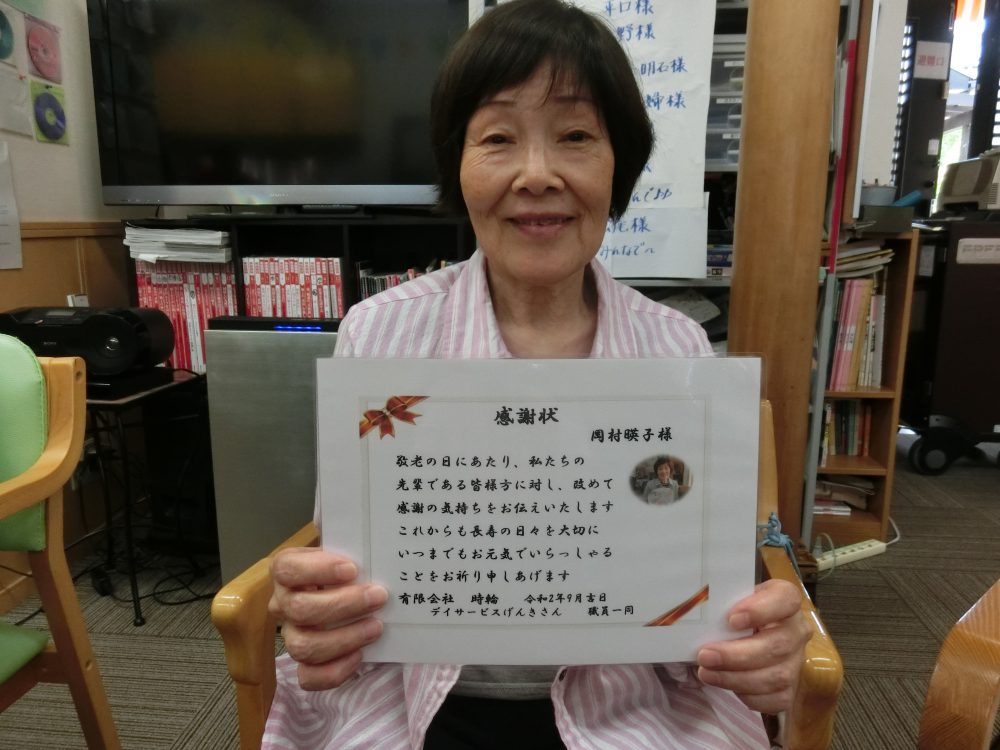 野様
明石様
婦様
尾様
避難口
SONY
感謝状
岡村暎子様
敬老の日にあたり、私たちの
先輩である皆様方に対し、改めて
感謝の気持ちをお伝えいたします
これからも長寿の日々を大切に
いつまでもお元気でいらっしゃる
ことをお祈り申しあげます
有限会社 時輪 令和2年9月吉日
デイサービスげんきさん 職員一同